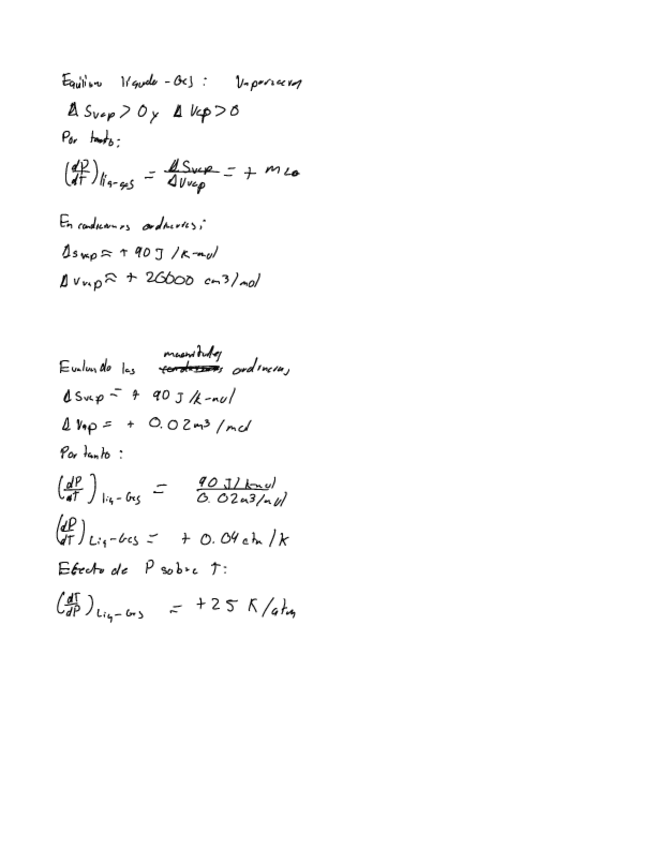 Equilibrio líquido - Gas : Vaporizacion
Δ Svap > 0 y Δ Vap > 0
Por tanto:
(dP/dT)liq-gas = Δ Svap / Δ Vvap = +
En condiciones ordinarias;
Δ svap ≈ + 90 J /k-mol
Δ vvap ≈ + 26000 cm3/mol
Evaluando las magnitudes ordinarias
Δ Svap = + 90 J /k-mol
Δ Vap = + 0.02 m3 /mol
Por tanto :
(dP/dT)liq-Gas = 90 J/kmol / 0.02m3/mol
(dP/dT)Liq-Gas = + 0.04 atm /k
Efecto de P sobre T:
(dT/dP)Liq-Gas = +25 K/atm